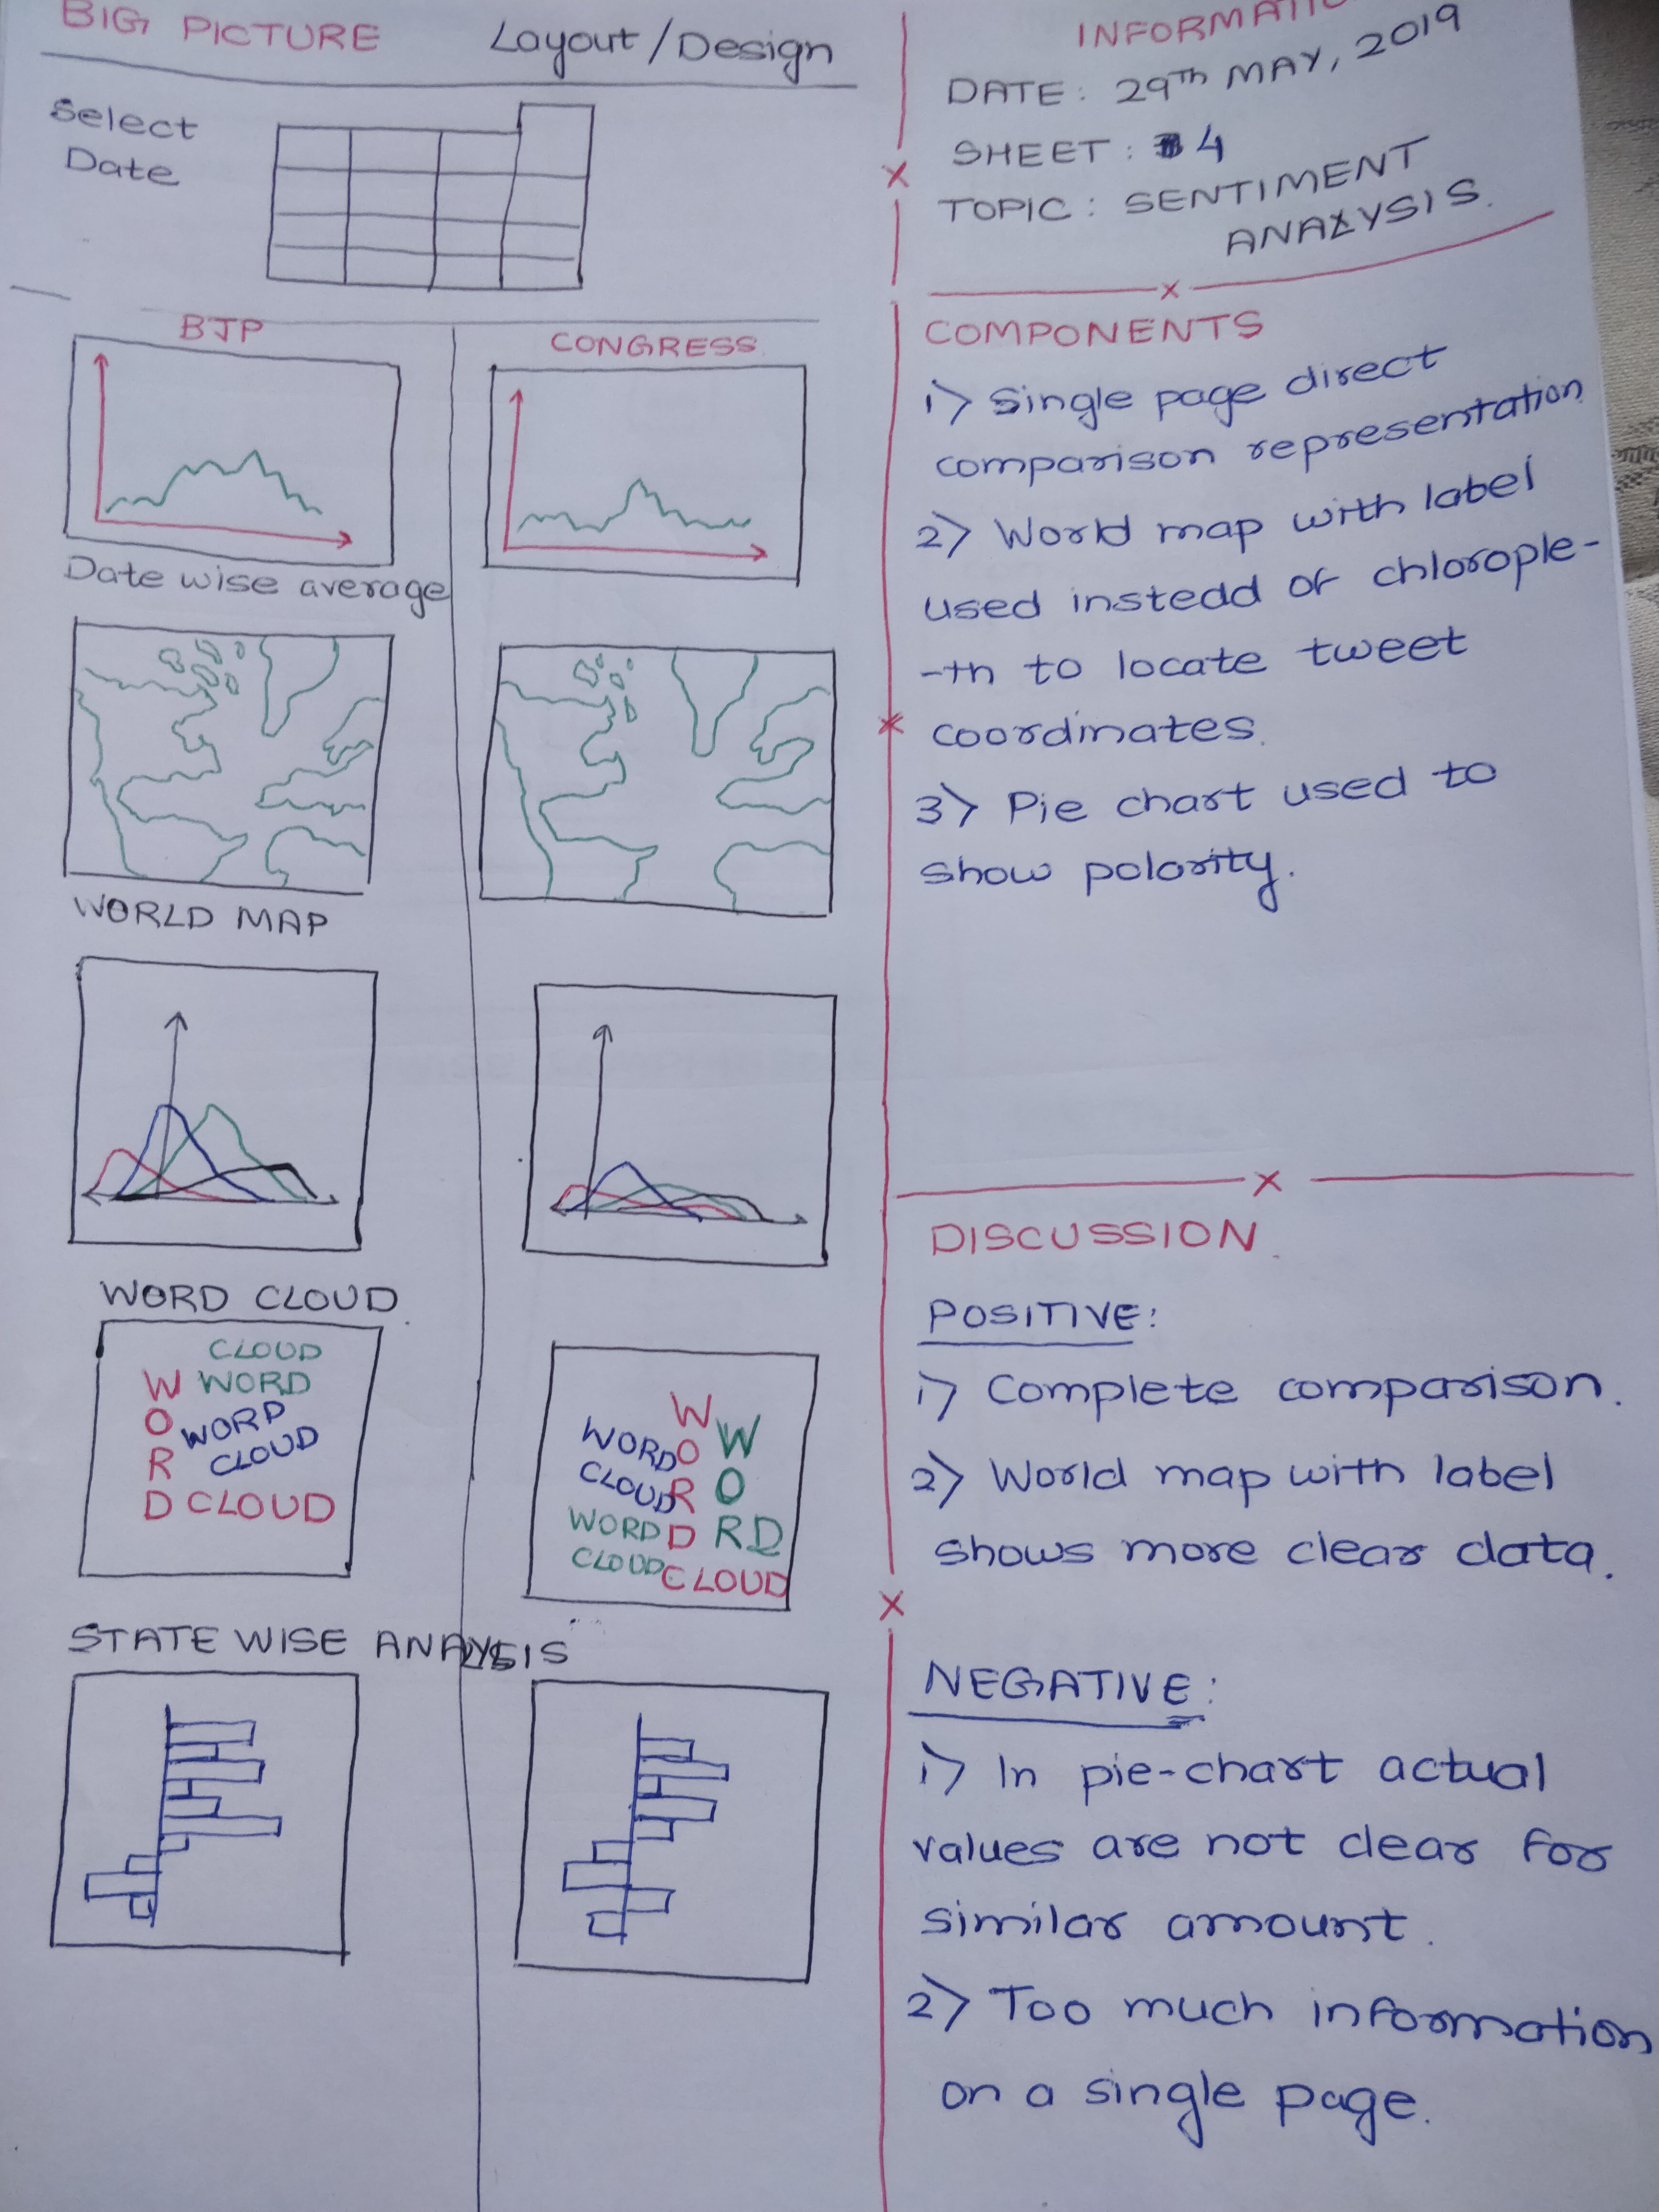 BIG PICTURE Layout/Design
Select
Date
BJP
CONGRESS
Date wise average
WORLD MAP
WORD CLOUD
CLOUD
WORD
WORD
WORD
CLOUD
CLOUD
WORD
WORD
CLOUD
WORD
WORD
CLOUD
CLOUD
STATE WISE ANALYSIS
DATE: 29TH MAY, 2019
SHEET: 4
TOPIC: SENTIMENT
ANALYSIS.
COMPONENTS
1) Single page direct
comparison representation
2) World map with label
used instedd of chlorople-
-th to locate tweet
coordinates.
3) Pie chart used to
show polority.
DISCUSSION.
POSITIVE:
1) Complete comparison.
2) World map with label
shows more clear data.
NEGATIVE:
1) In pie-chart actual
values are not clear for
similar amount.
2) Too much information
on a single page.